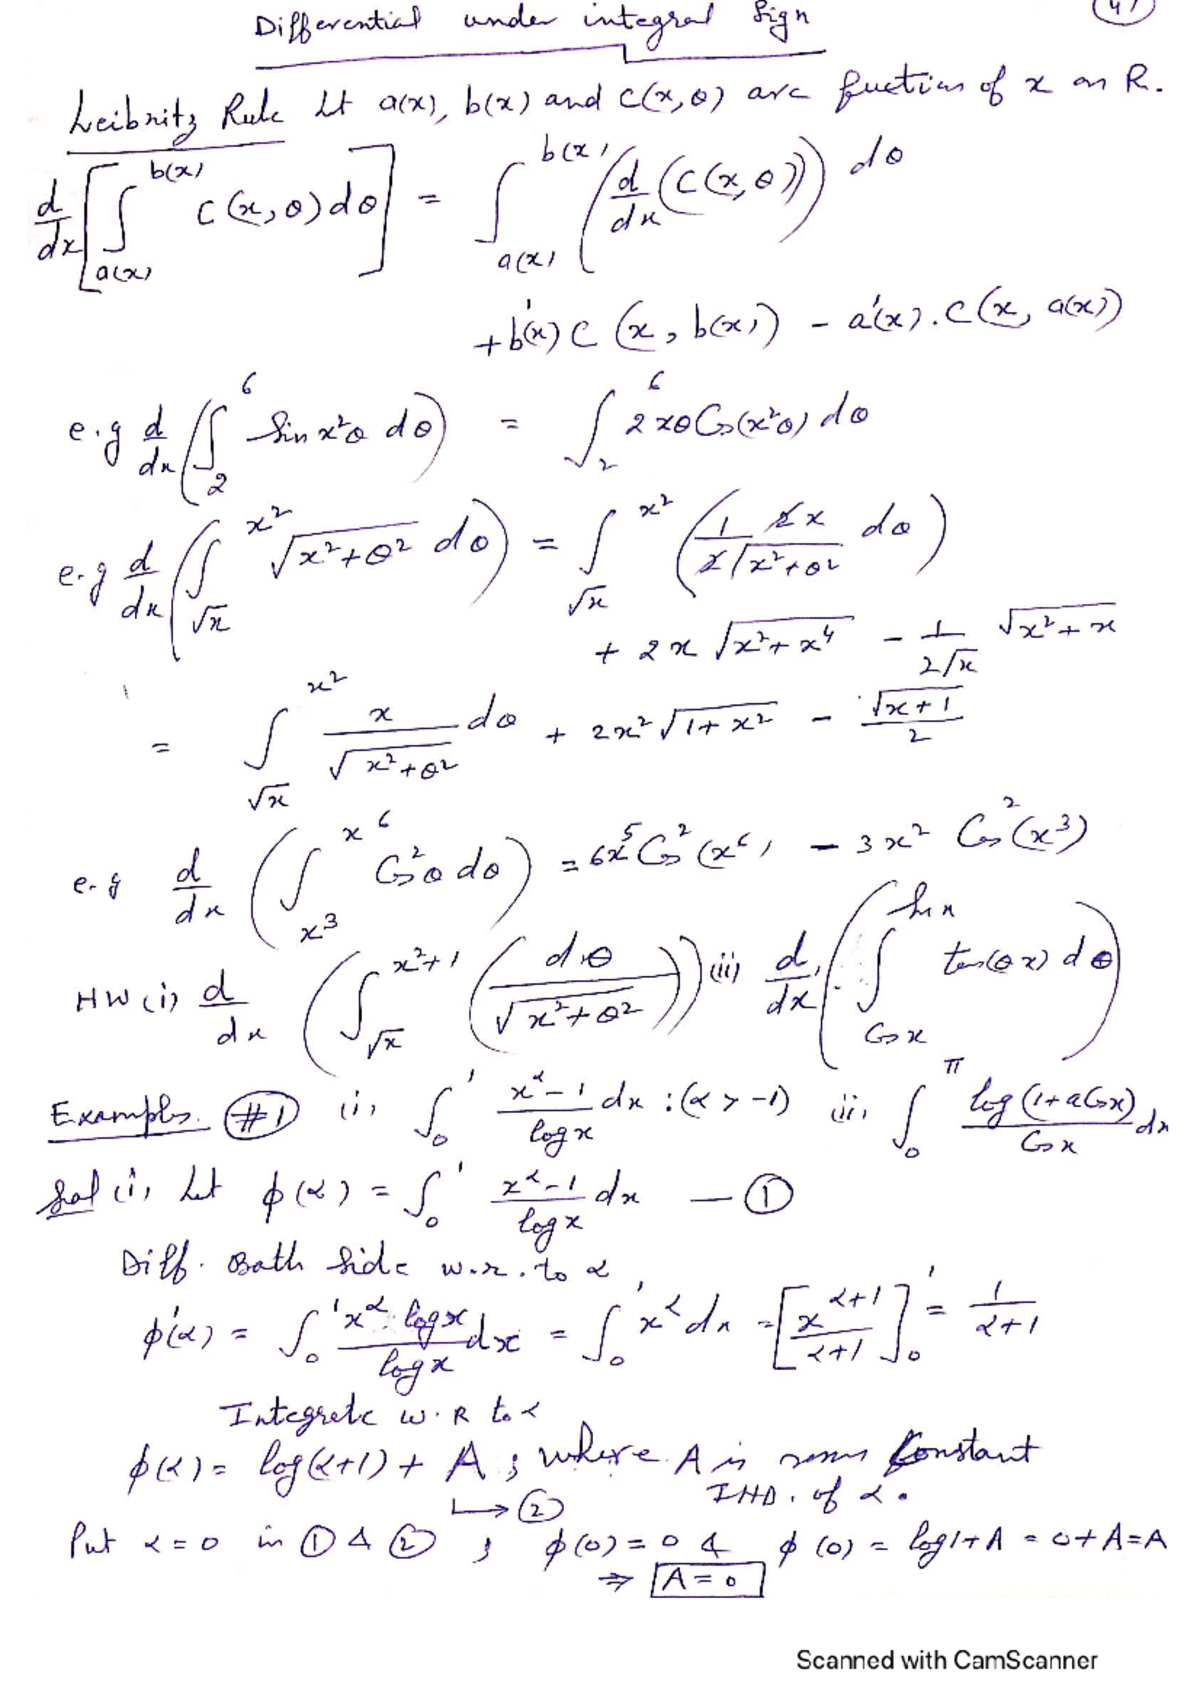 Differential under integral Sign
41
Leibnitz Rule Lt a(x), b(x) and C(x,θ) are fuction of x on R.
d/dx [∫_{a(x)}^{b(x)} C(x,θ) dθ] = ∫_{a(x)}^{b(x)} (d/dx (C(x,θ))) dθ
+ b'(x) C (x, b(x)) - a'(x). C(x, a(x))
e.g d/dx (∫_2^6 Sin x²θ dθ) = ∫_2^6 2xθ Cos(x²θ) dθ
e.g d/dx (∫_{√x}^{x²} √(x²+θ²) dθ) = ∫_{√x}^{x²} (1/(2√(x²+θ²)) 2x dθ)
+ 2x √(x²+x⁴) - 1/(2√x) √(x²+x)
= ∫_{√x}^{x²} x/√(x²+θ²) dθ + 2x² √(1+x²) - √(x+1)/2
e.g d/dx (∫_{x³}^{x⁶} Cos²θ dθ) = 6x⁵ Cos²(x⁶) - 3x² Cos²(x³)
HW (i) d/dx (∫_{√x}^{x²+1} (dθ/√(x²+θ²))) (ii) d/dx (∫_{Cos x}^{Sin x} tan(θx) dθ)
Examples. #1 (i) ∫_0^1 (x^α-1)/log x dx : (α > -1) (ii) ∫_0^π log(1+a Cos x)/Cos x dx
Sol (i) Let φ(α) = ∫_0^1 (x^α-1)/log x dx — ①
Diff. Both Side w.r.to α
φ'(α) = ∫_0^1 (x^α. log x)/log x dx = ∫_0^1 x^α dx = [x^{α+1}/(α+1)]_0^1 = 1/(α+1)
Integrate w.R to α
φ(α) = log(α+1) + A ; where A is some Constant
↳ ② IND. of α.
Put α = 0 in ① & ② ; φ(0) = 0 & φ(0) = log1+A = 0+A=A
⇒ A = 0
Scanned with CamScanner